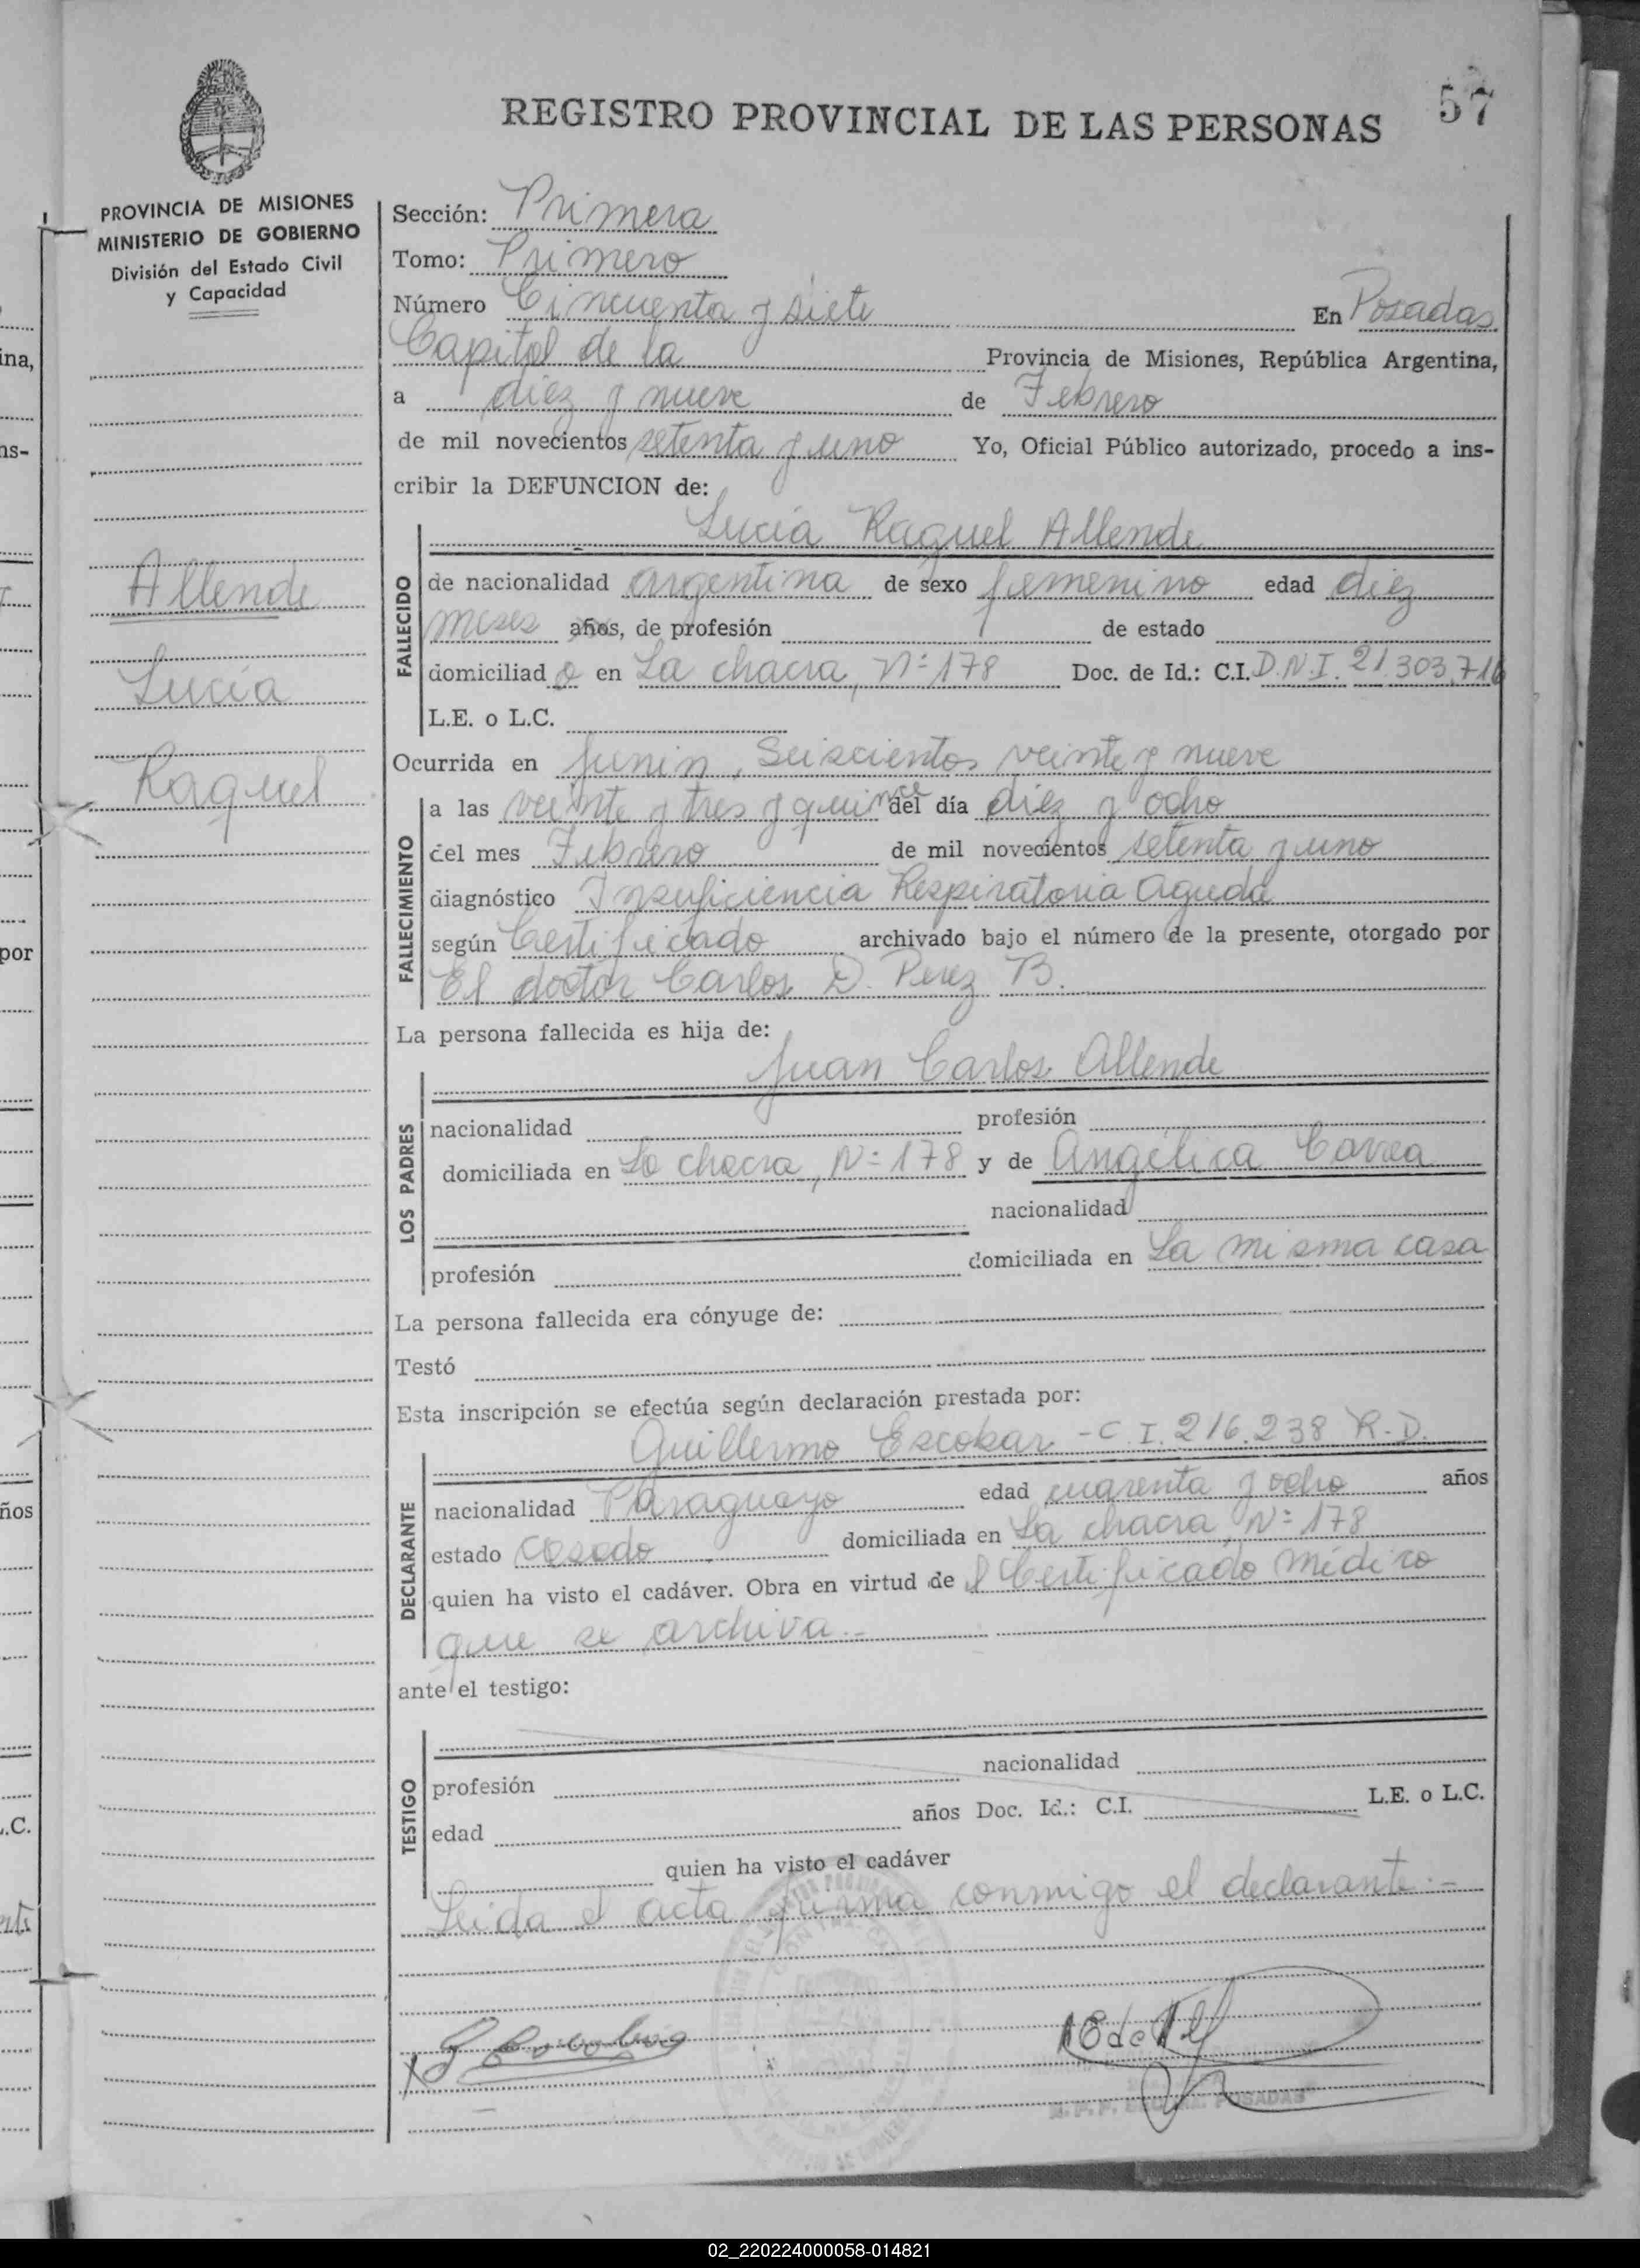 57
REGISTRO PROVINCIAL DE LAS PERSONAS
PROVINCIA DE MISIONES
MINISTERIO DE GOBIERNO
División del Estado Civil
y Capacidad
Allende
Lucía
Raquel
Sección: Primera
Tomo: Primero
Número Cincuenta y siete En Posadas
Capital de la Provincia de Misiones, República Argentina,
a diez y nueve de Febrero
de mil novecientos setenta y uno Yo, Oficial Público autorizado, procedo a ins-
cribir la DEFUNCION de:
Lucía Raquel Allende
FALLECIDO
de nacionalidad argentina de sexo femenino edad diez
meses años, de profesión de estado
domiciliad o en La chacra, Nº 178 Doc. de Id.: C.I. D.N.I. 21.303.716
L.E. o L.C.
Ocurrida en Junin, Seiscientos veinte y nueve
FALLECIMIENTO
a las veinte y tres y quince del día diez y ocho
del mes Febrero de mil novecientos setenta y uno
diagnóstico Insuficiencia Respiratoria Aguda
según Certificado archivado bajo el número de la presente, otorgado por
El doctor Carlos D. Perez B.
La persona fallecida es hija de:
Juan Carlos Allende
LOS PADRES
nacionalidad profesión
domiciliada en La chacra, Nº 178 y de Angélica Correa
nacionalidad
profesión domiciliada en La misma casa
La persona fallecida era cónyuge de:
Testó
Esta inscripción se efectúa según declaración prestada por:
Guillermo Escobar - C.I. 216.238 R.D.
DECLARANTE
nacionalidad Paraguayo edad cuarenta y ocho años
estado casado domiciliada en La chacra, Nº 178
quien ha visto el cadáver. Obra en virtud de l Certificado médico
que se archiva.-
ante el testigo:
TESTIGO
profesión nacionalidad
edad años Doc. Id.: C.I. L.E. o L.C.
quien ha visto el cadáver
Leida el acta firma conmigo el declarante.-
POSADAS
ina,
ns-
por
ños
.C.
02_220224000058-014821